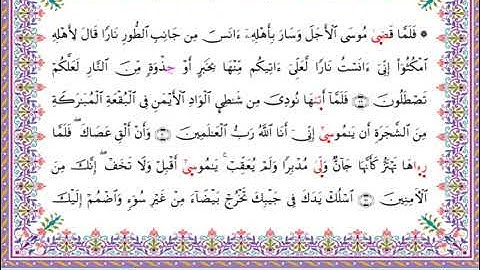 ۞ فَلَمَّا قَضىٰ مُوسَى ٱلْأَجَلَ وَسَارَ بِأَهْلِهِۦٓ ءَانَسَ مِن جَانِبِ ٱلطُّورِ نَارًا قَالَ لِأَهْلِهِ
ٱمْكُثُوٓا۟ إِنِّىٓ ءَانَسْتُ نَارًا لَّعَلِّىٓ ءَاتِيكُم مِّنْهَا بِخَبَرٍ أَوْ جِذْوَةٍ مِّنَ ٱلنَّارِ لَعَلَّكُمْ
تَصْطَلُونَ ۝ فَلَمَّآ أَتىٰهَا نُودِىَ مِن شَٰطِئِ ٱلْوَادِ ٱلْأَيْمَنِ فِى ٱلْبُقْعَةِ ٱلْمُبَٰرَكَةِ
مِنَ ٱلشَّجَرَةِ أَن يَٰمُوسىٰٓ إِنِّىٓ أَنَا ٱللَّهُ رَبُّ ٱلْعَٰلَمِينَ ۝ وَأَنْ أَلْقِ عَصَاكَ ۖ فَلَمَّا
رِءَاهَا تَهْتَزُّ كَأَنَّهَا جَآنٌّ وَلّىٰ مُدْبِرًا وَلَمْ يُعَقِّبْ ۚ يَٰمُوسىٰٓ أَقْبِلْ وَلَا تَخَفْ ۖ إِنَّكَ مِنَ
ٱلْءَامِنِينَ ۝ ٱسْلُكْ يَدَكَ فِى جَيْبِكَ تَخْرُجْ بَيْضَآءَ مِنْ غَيْرِ سُوٓءٍ وَٱضْمُمْ إِلَيْكَ